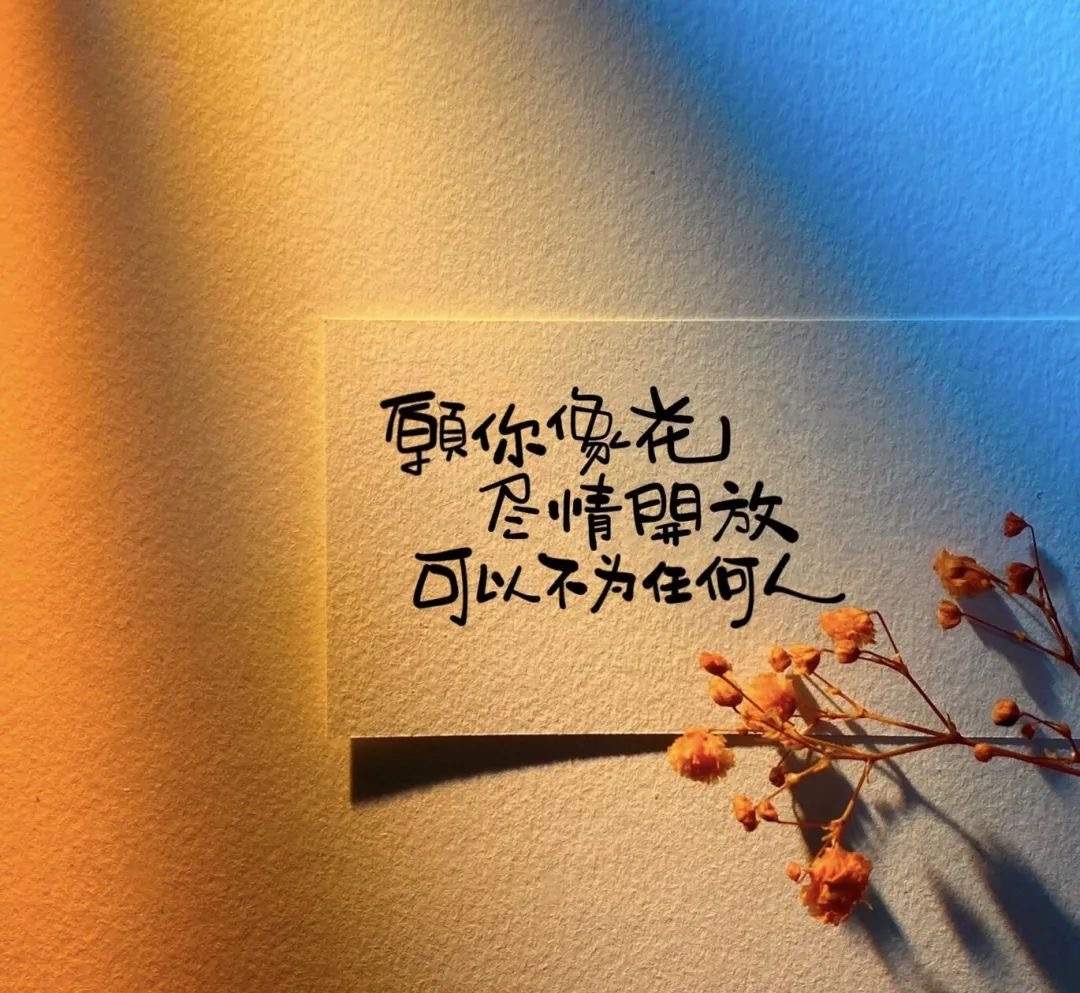 願你像花
尽情開放
可以不为任何人